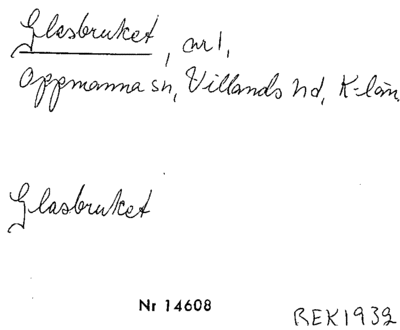 Glasbruket, nr 1,
Oppmanna sn, Villands hd, K-län
Glasbruket
Nr 14608
REK1932